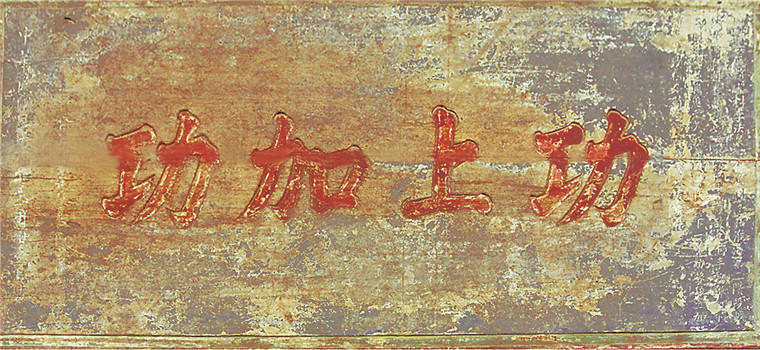 功上加功